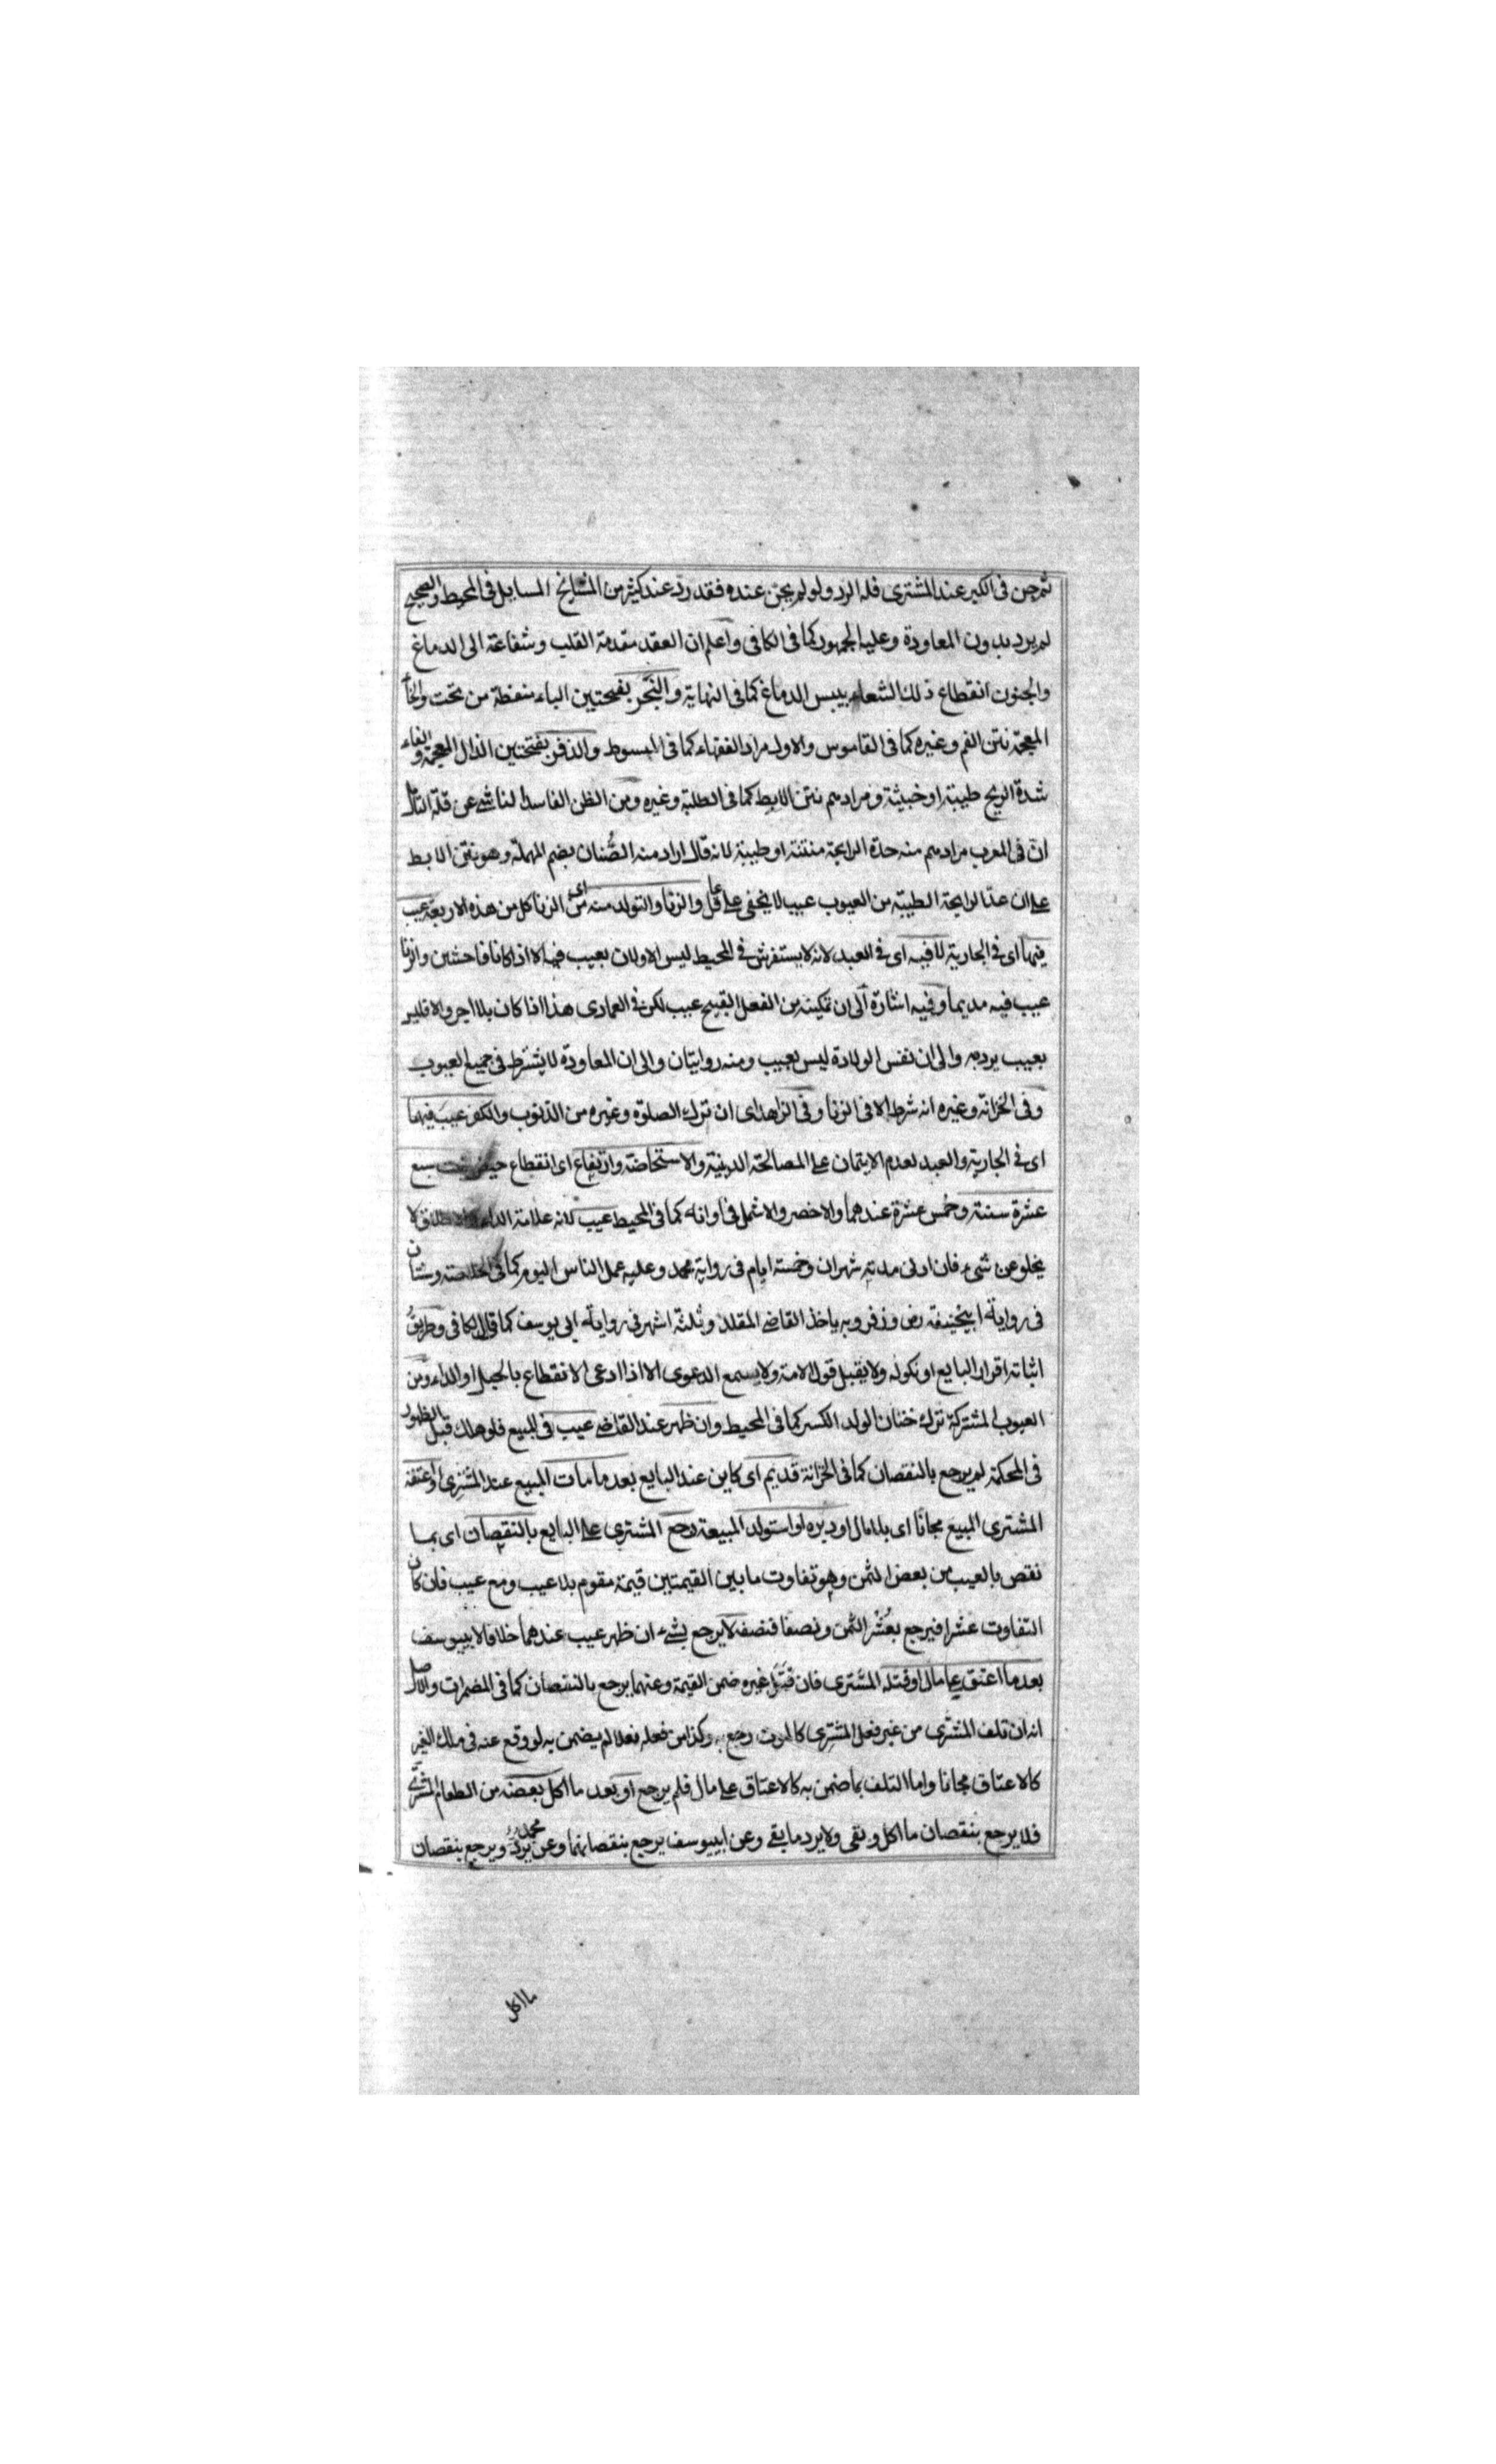 ثم جن فى الكبر عند المشترى فله الرد ولو لم يجن عنده فقد رد عند كثير من المشايخ المسايل فى المحيط والصحيح
لم يرد بدون المعاودة وعليه الجمهور كما فى الكافى واعلم ان العقد مقدمة القلب وشفاعة الى الدماغ
والجنون انقطاع ذلك الشعاع بيبس الدماغ كما فى النهاية والبخر بفتحتين الباء بنقطة من تحت والخاء
المعجمة نتن الفم وغيره كما فى القاموس والاول مراد الفقهاء كما فى المبسوط والذفر بفتحتين الذال المعجمة والفاء
شدة الريح طيبة او خبيثة ومرادهم نتن الابط كما فى الطلبة وغيره ومن الظن الفاسد الناشى عن قلة التأمل
ان فى المغرب مرادهم منه حدة الرايحة منتنة او طيبة لانه قال اراد منه الصُّنان بضم المهملة وهو نتن الابط
على ان عد الرايحة الطيبة من العيوب عيب لا يخفى على عاقل والزنا والتولد منه اى من الزنا كل من هذه الاربعة عيب
فيها اى فى الجارية لا فيه اى فى العبد لانه لا يستفرش فى المحيط ليس الاولان بعيب فيه الا اذا كانا فاحشين والزنا
عيب فيه مديما وفيه اشارة الى ان تمكينه من الفعل القبيح عيب لكن فى العمادى هذا اذا كان بلا اجر والا فليس
بعيب يرد به والى ان نفس الولادة ليس بعيب ومنه روايتان والى ان المعاودة لا يشترط فى جميع العيوب
وفى الخزانة وغيره انه شرط الا فى الزنا وفى الزاهدى ان ترك الصلوة وغيره من الذنوب والكفر عيب فيهما
اى فى الجارية والعبد لعدم الايتمان على المصالحة الدينية والاستحاضة وارتفاع اى انقطاع حيض بنت سبع
عشرة سنة وخمس عشرة عندهما والاخصر والاشمل فى اوانه كما فى المحيط عيب لانه علامة الداء والاطلاق لا
يخلو عن شىء فان ادنى مدته شهران وخمسة ايام فى رواية محمد وعليه عمل الناس اليوم كما فى الخلاصة وسنتان
فى رواية ابيحنيفة رض وزفر وبه ياخذ القاضى المقلد وثلثة اشهر فى رواية ابى يوسف كما قال الكافى وطريق
اثباته اقرار البايع او نكوله ولا يقبل قول الامة ولا يسمع الدعوى الا اذا ادعى الانقطاع بالحبل او الداء ومن
العيوب المشتركة ترك ختان الولد الكبير كما فى المحيط وان ظهر عند القاضى عيب فى المبيع فلو هلك قبل الظهور
فى المحكمة لم يرجع بالنقصان كما فى الخزانة قديم اى كاين عند البايع بعد ما مات المبيع عند المشترى او اعتقه
المشترى المبيع مجانا اى بلا مال او دبره او استولد المبيعة رجع المشترى على البايع بالنقصان اى بما
نقص بالعيب من بعض الثمن وهو تفاوت ما بين القيمتين قيمة مقوم بلا عيب ومع عيب فان كان
التفاوت عشرا فيرجع بعُشْر الثمن ونصفا فنصف لا يرجع بشىء ان ظهر عيب عندهما خلافا لابييوسف
بعد ما اعتق على مال او قتله المشترى فان قَتَلَ غيره ضمن القيمة وعنهما يرجع بالنقصان كما فى المضمرات والاصل
انه ان تلف المشترى من غير فعل المشترى كالموت رجع به وكذا من فعله فعلا لم يضمن به لو وقع عنه فى ملك الغير
كالاعتاق مجانا واما التلف بما ضمن به كالاعتاق على مال فلم يرجع او بعد ما اكل بعضه من الطعام المشترى
فلا يرجع بنقصان ما اكل وبقى ولا يرد ما بقى وعن ابييوسف يرجع بنقصانهما وعن محمد يردّ ويرجع بنقصان
ما اكل